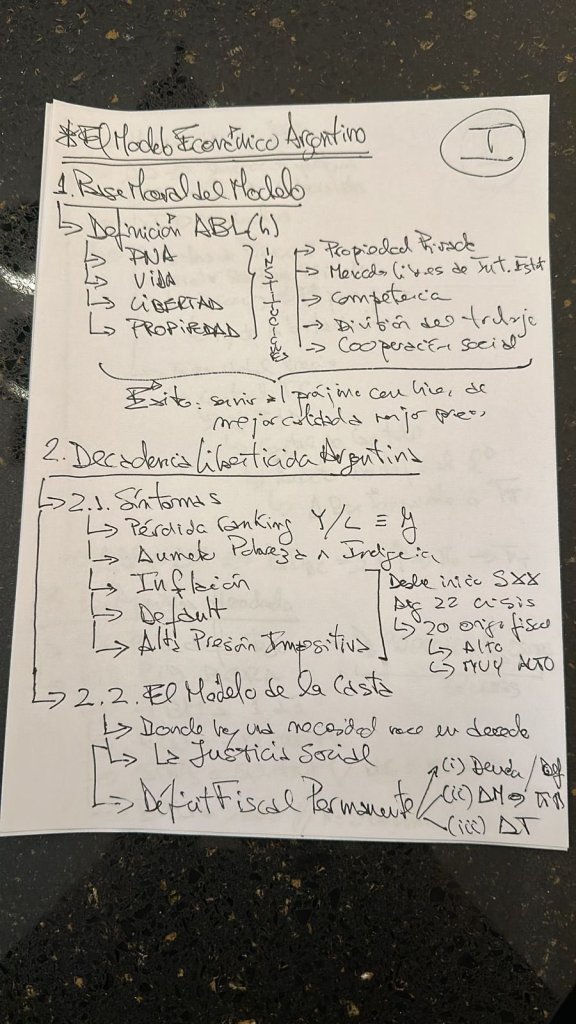 * El Modelo Económico Argentino
I
1. Base Moral del Modelo
↳ Definición ABL(h)
↳ PNA
↳ VIDA
↳ LIBERTAD
↳ PROPIEDAD
INSTITUCIONES
→ Propiedad Privada
→ Mercados libres de Int. Estat
→ Competencia
→ División del trabajo
→ Cooperación social
Éxito: servir al prójimo con bienes de
mejor calidad a mejor precio
2. Decadencia Liberticida Argentina
↳ 2.1. Síntomas
↳ Pérdida Ranking Y/L ≡ y
↳ Aumento Pobreza ∧ Indigencia
↳ Inflación
↳ Default
↳ Alta Presión Impositiva
Desde inicio SXX
Arg 22 crisis
↳ 20 origen fiscal
↳ ALTO
↳ MUY ALTO
↳ 2.2. El Modelo de la Casta
↳ Donde hay una necesidad nace un derecho
↳ La Justicia Social
↳ Déficit Fiscal Permanente
(i) Deuda / Def
(ii) ΔM
(iii) ΔT